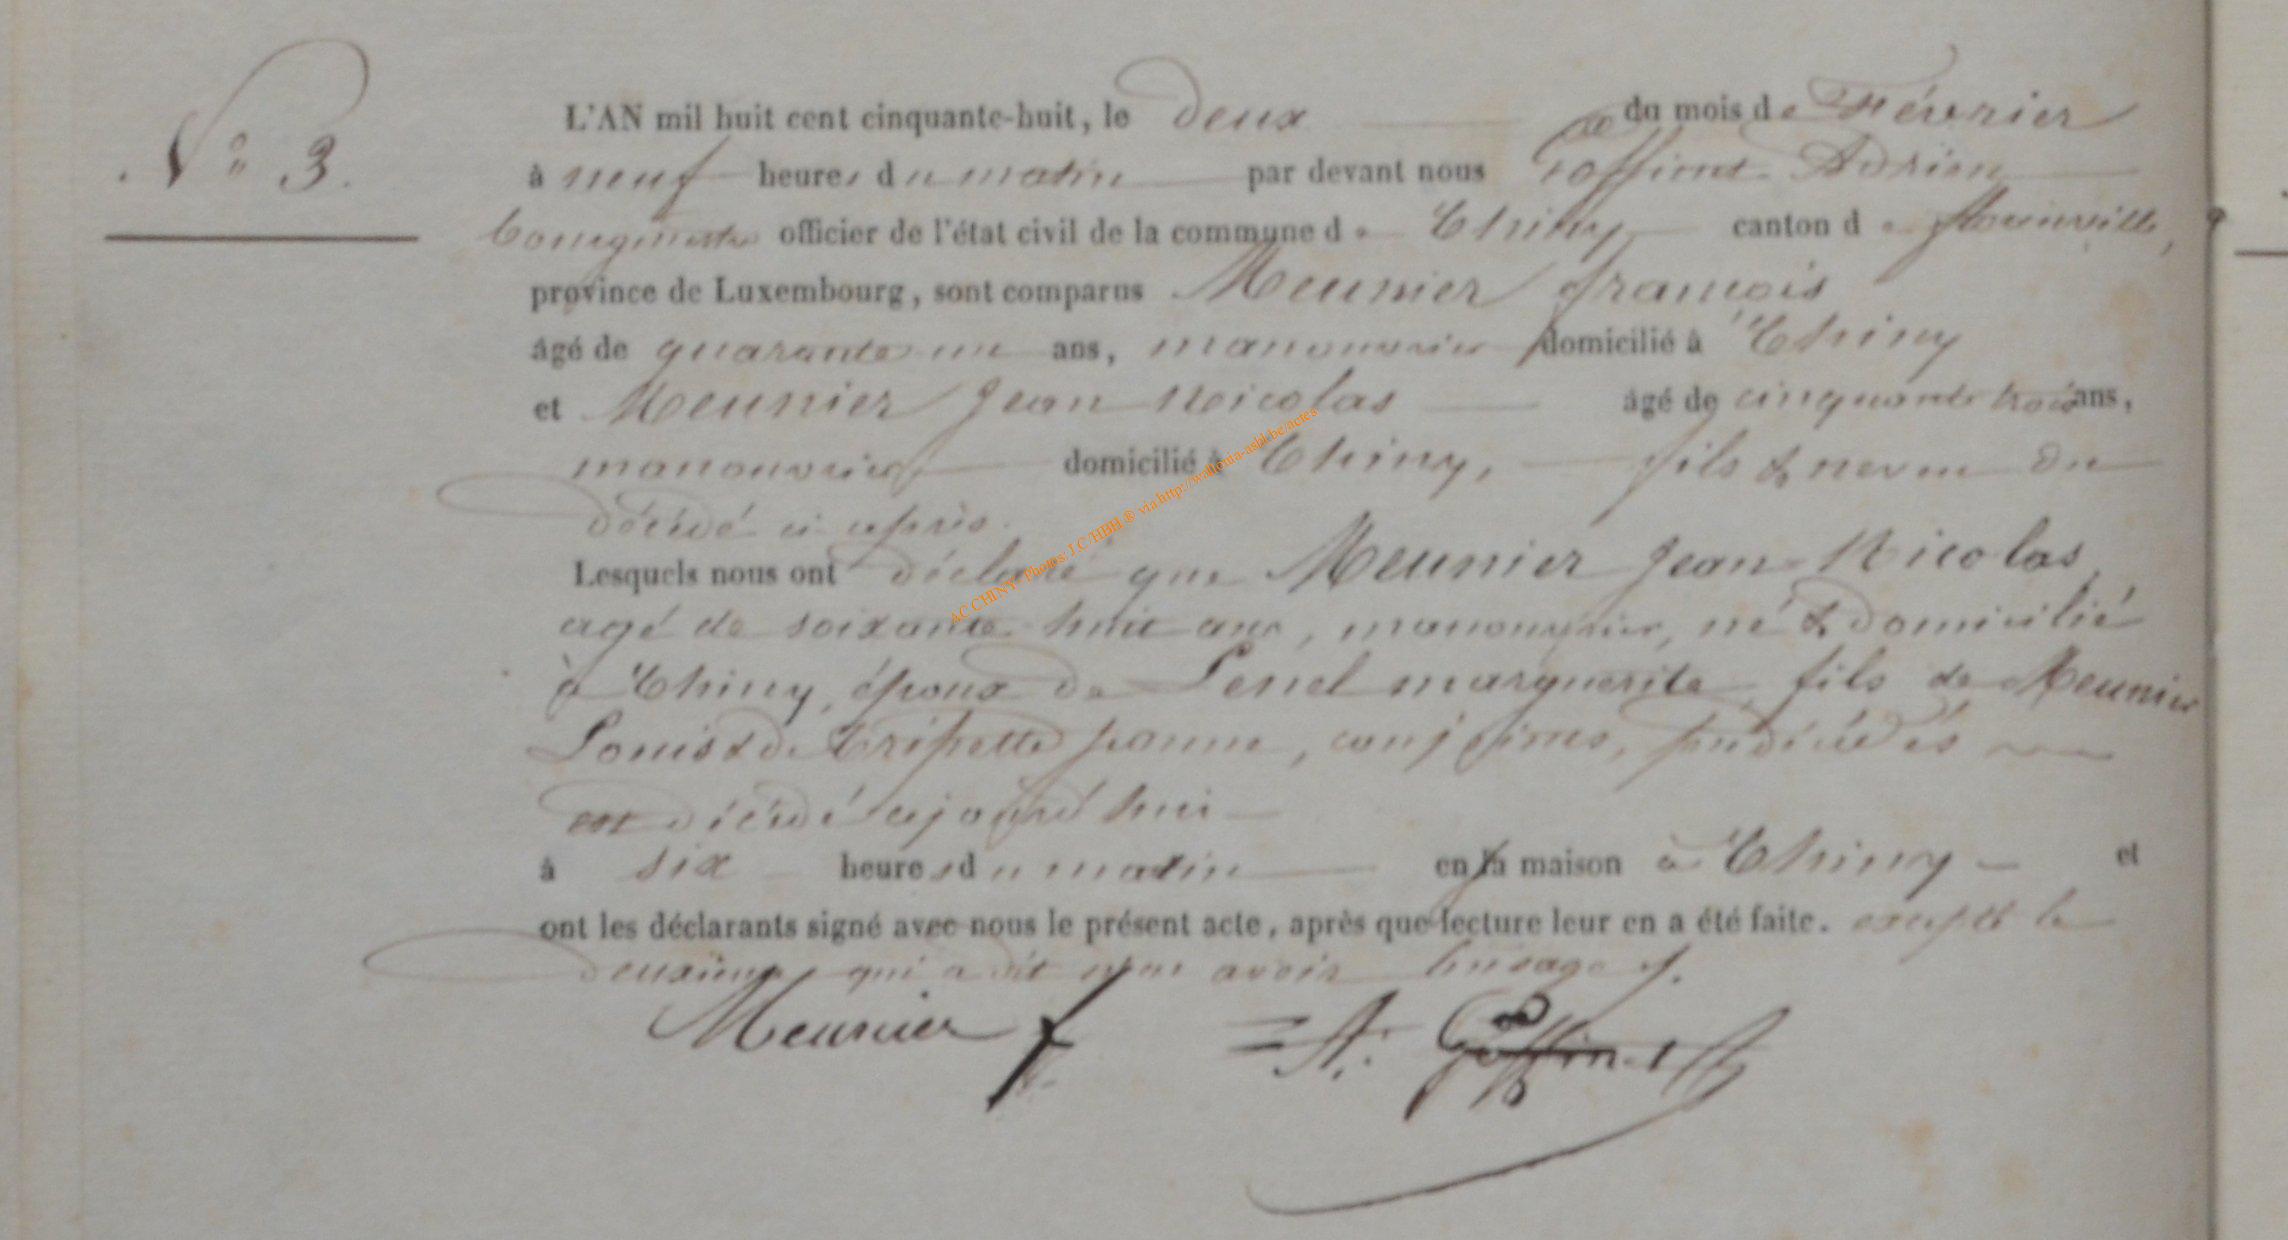 N° 3.
L'AN mil huit cent cinquante-huit, le deux du mois de Février
à neuf heures du matin par devant nous Goffinet Adrien
bourgmestre officier de l'état civil de la commune de Chiny canton de florenville,
province de Luxembourg, sont comparus Meunier françois
âgé de quarante un ans, manouvrier domicilié à Chiny
et Meunier Jean Nicolas âgé de cinquante trois ans,
manouvrier domicilié à Chiny, fils & neveu du
décédé ci après.
Lesquels nous ont déclaré que Meunier Jean Nicolas
agé de soixante huit ans, manouvrier, né & domicilié
à Chiny, époux de Lenel marguerite, fils de Meunier
Louis & de Tripette jeanne, conjoints, prédécédés
est décédé aujourd'hui
à six heures du matin en sa maison à Chiny et
ont les déclarants signé avec nous le présent acte, après que lecture leur en a été faite. excepté le
deuxième qui a dit n'en avoir l'usage
Meunier f
A. Goffinet
AC CHINY - Photos J.C/HBH ® via http://wallonia-asbl.be/actes